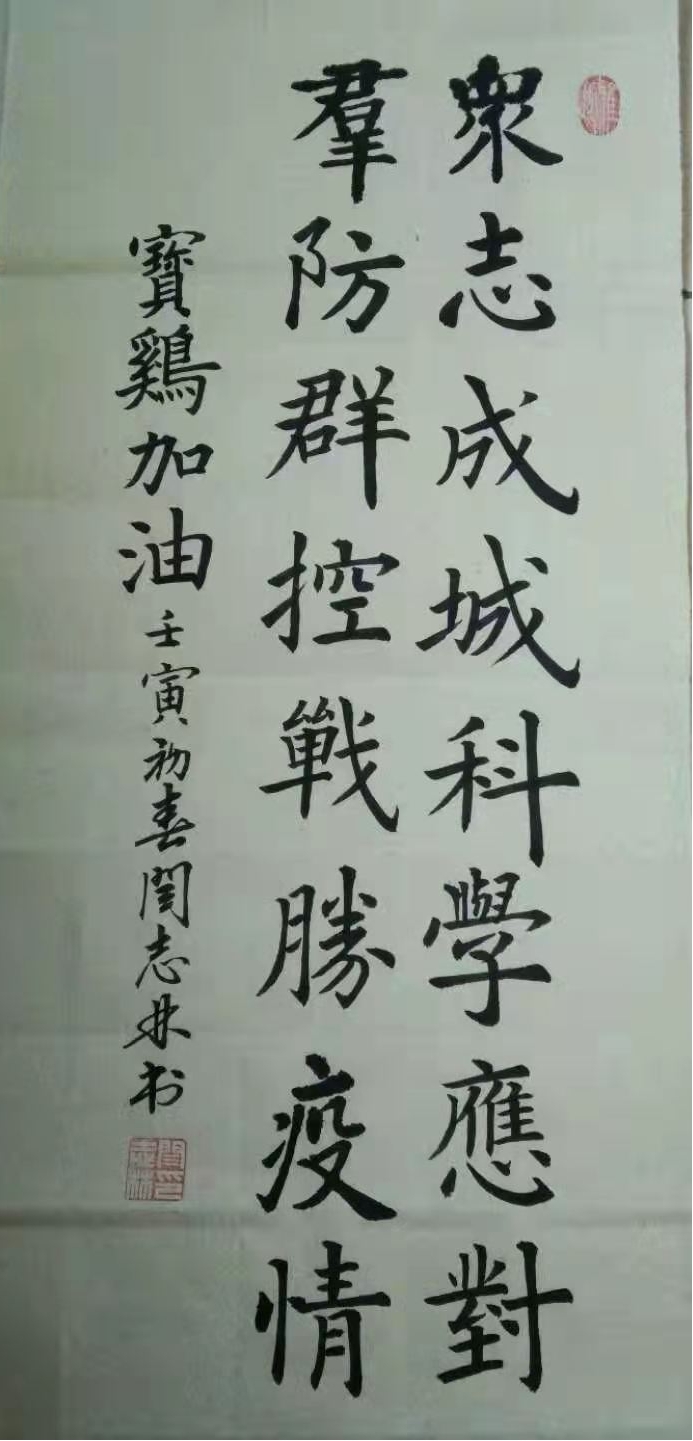 眾志成城科學應對
羣防群控戰勝疫情
寶鷄加油 壬寅初春閆志林书